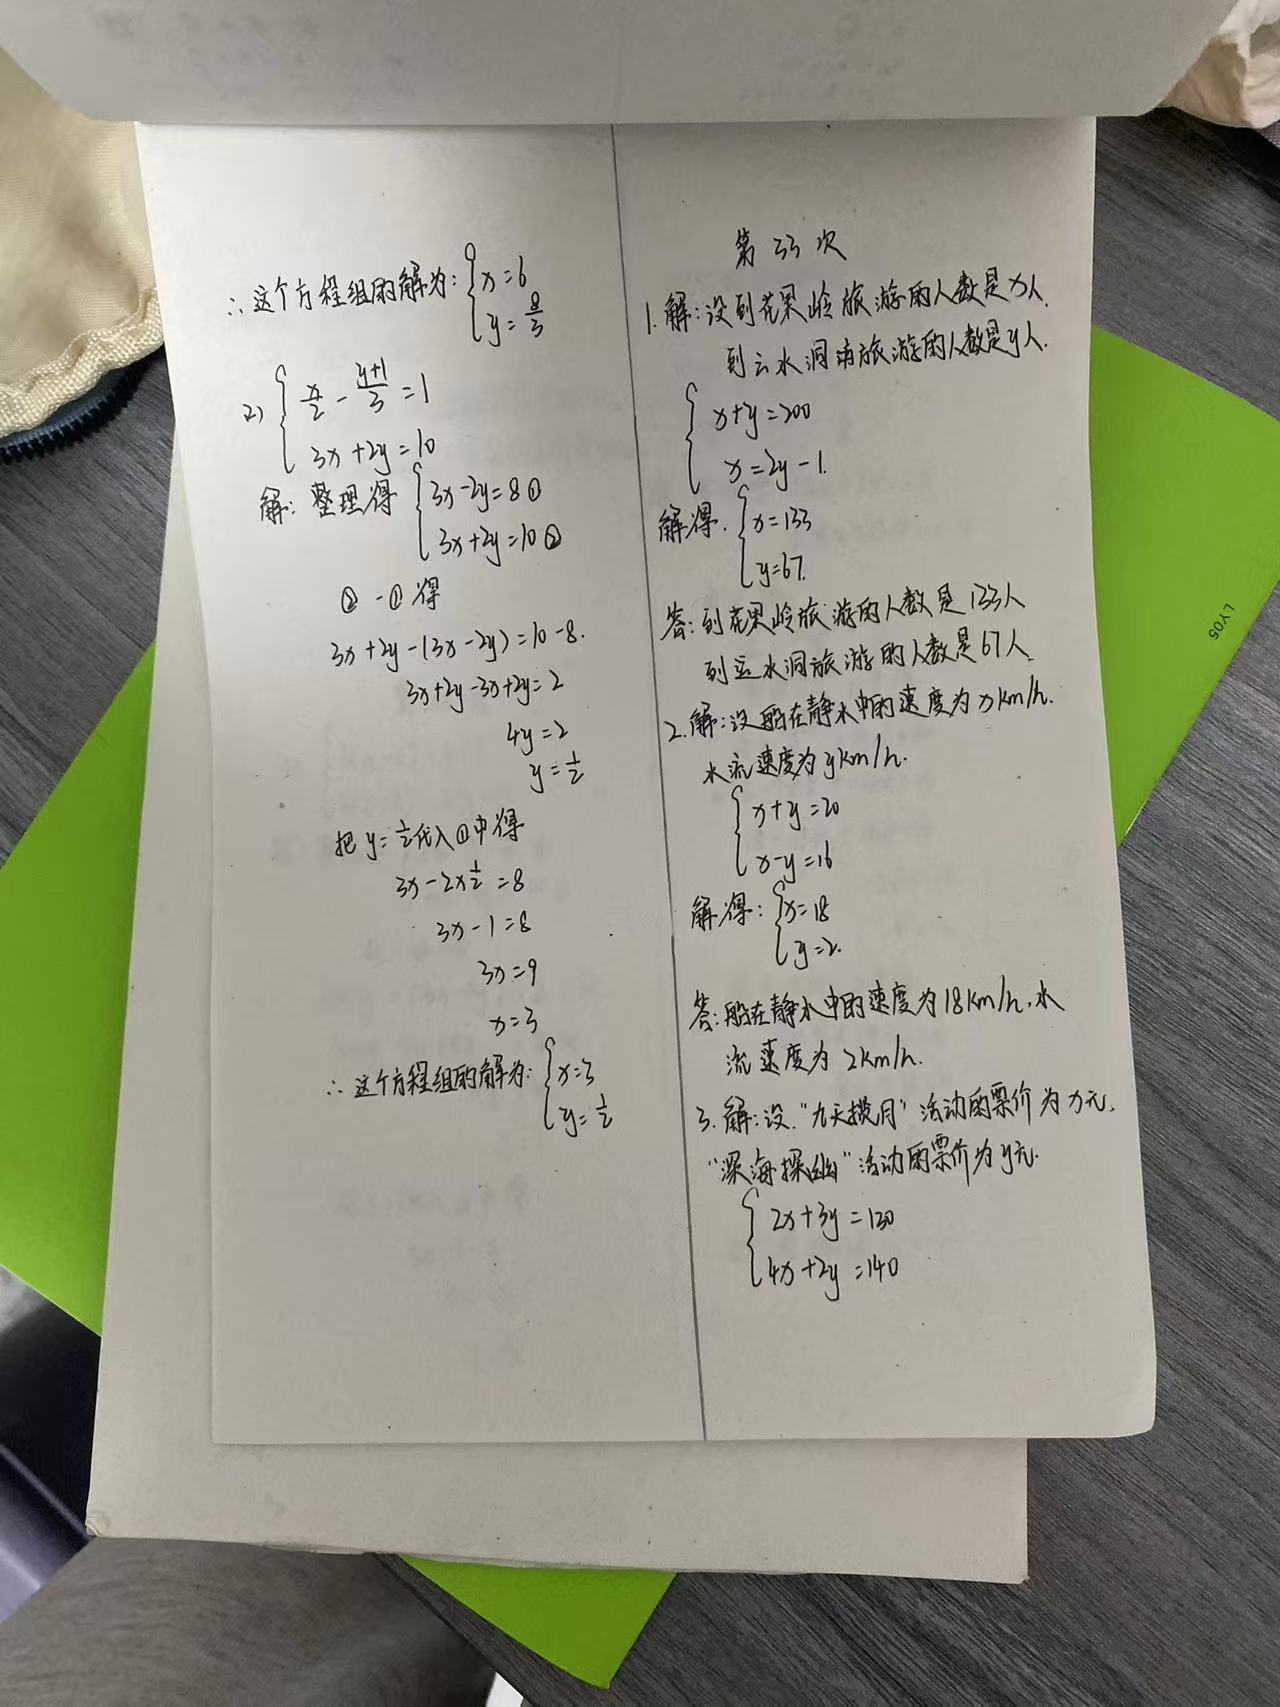 ∴这个方程组的解为:{x=6
y=8/3
2) {x/2-(y+1)/3=1
3x+2y=10
解:整理得{3x-2y=8①
3x+2y=10②
②-①得
3x+2y-(3x-2y)=10-8.
3x+2y-3x+2y=2
4y=2
y=1/2
把y=1/2代入①中得
3x-2×1/2=8
3x-1=8
3x=9
x=3
∴这个方程组的解为:{x=3
y=1/2
第33次
1.解:设到花果岭旅游的人数是x人.
到云水洞旅游的人数是y人.
{x+y=200
x=2y-1.
解得.{x=133
y=67.
答:到花果岭旅游的人数是133人
到云水洞旅游的人数是67人.
2.解:设船在静水中的速度为xkm/h.
水流速度为ykm/h.
{x+y=20
x-y=16
解得:{x=18
y=2.
答:船在静水中的速度为18km/h,水
流速度为2km/h.
3.解:设"九天揽月"活动的票价为x元,
"深海探幽"活动的票价为y元.
{2x+3y=130
4x+2y=140
LY05